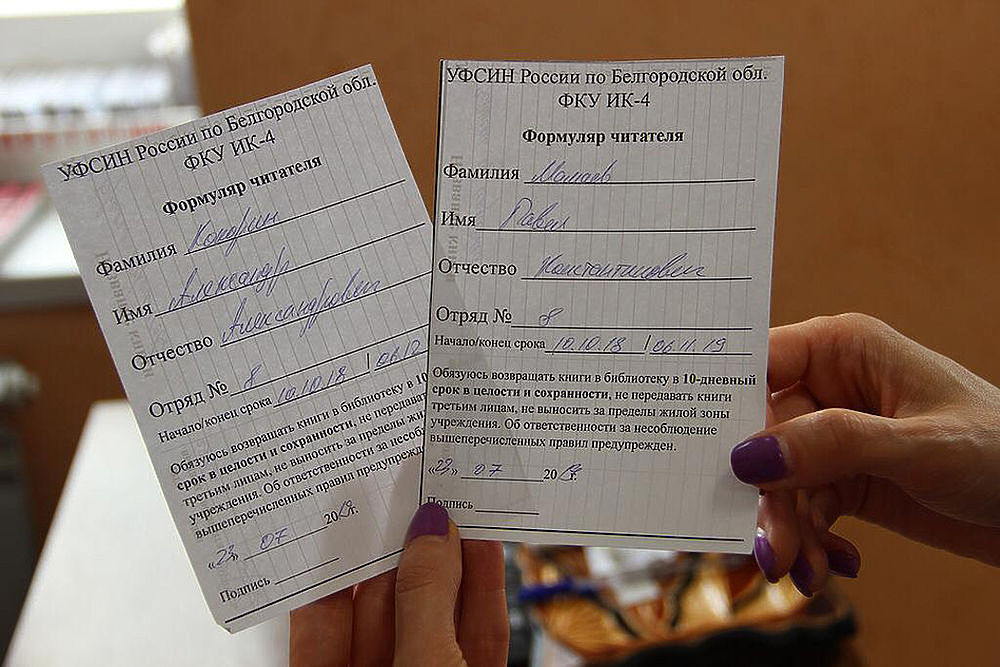 УФСИН России по Белгородской обл.
ФКУ ИК-4
Формуляр читателя
Фамилия Кокорин
Имя Александр
Отчество Александрович
Отряд № 8
Начало/конец срока 10.10.18 / 06.12
Обязуюсь возвращать книги в библиотеку в 10
срок в целости и сохранности, не передавать
третьим лицам, не выносить за пределы
учреждения. Об ответственности за несоблю
вышеперечисленных правил предупрежд
«23» 07 2019г.
Подпись
УФСИН России по Белгородской обл.
ФКУ ИК-4
Формуляр читателя
Фамилия Мамаев
Имя Павел
Отчество Константинович
Отряд № 8
Начало/конец срока 10.10.18 / 06.11.19
Обязуюсь возвращать книги в библиотеку в 10-дневный
срок в целости и сохранности, не передавать книги
третьим лицам, не выносить за пределы жилой зоны
учреждения. Об ответственности за несоблюдение
вышеперечисленных правил предупрежден.
«23» 07 2019г.
Подпись